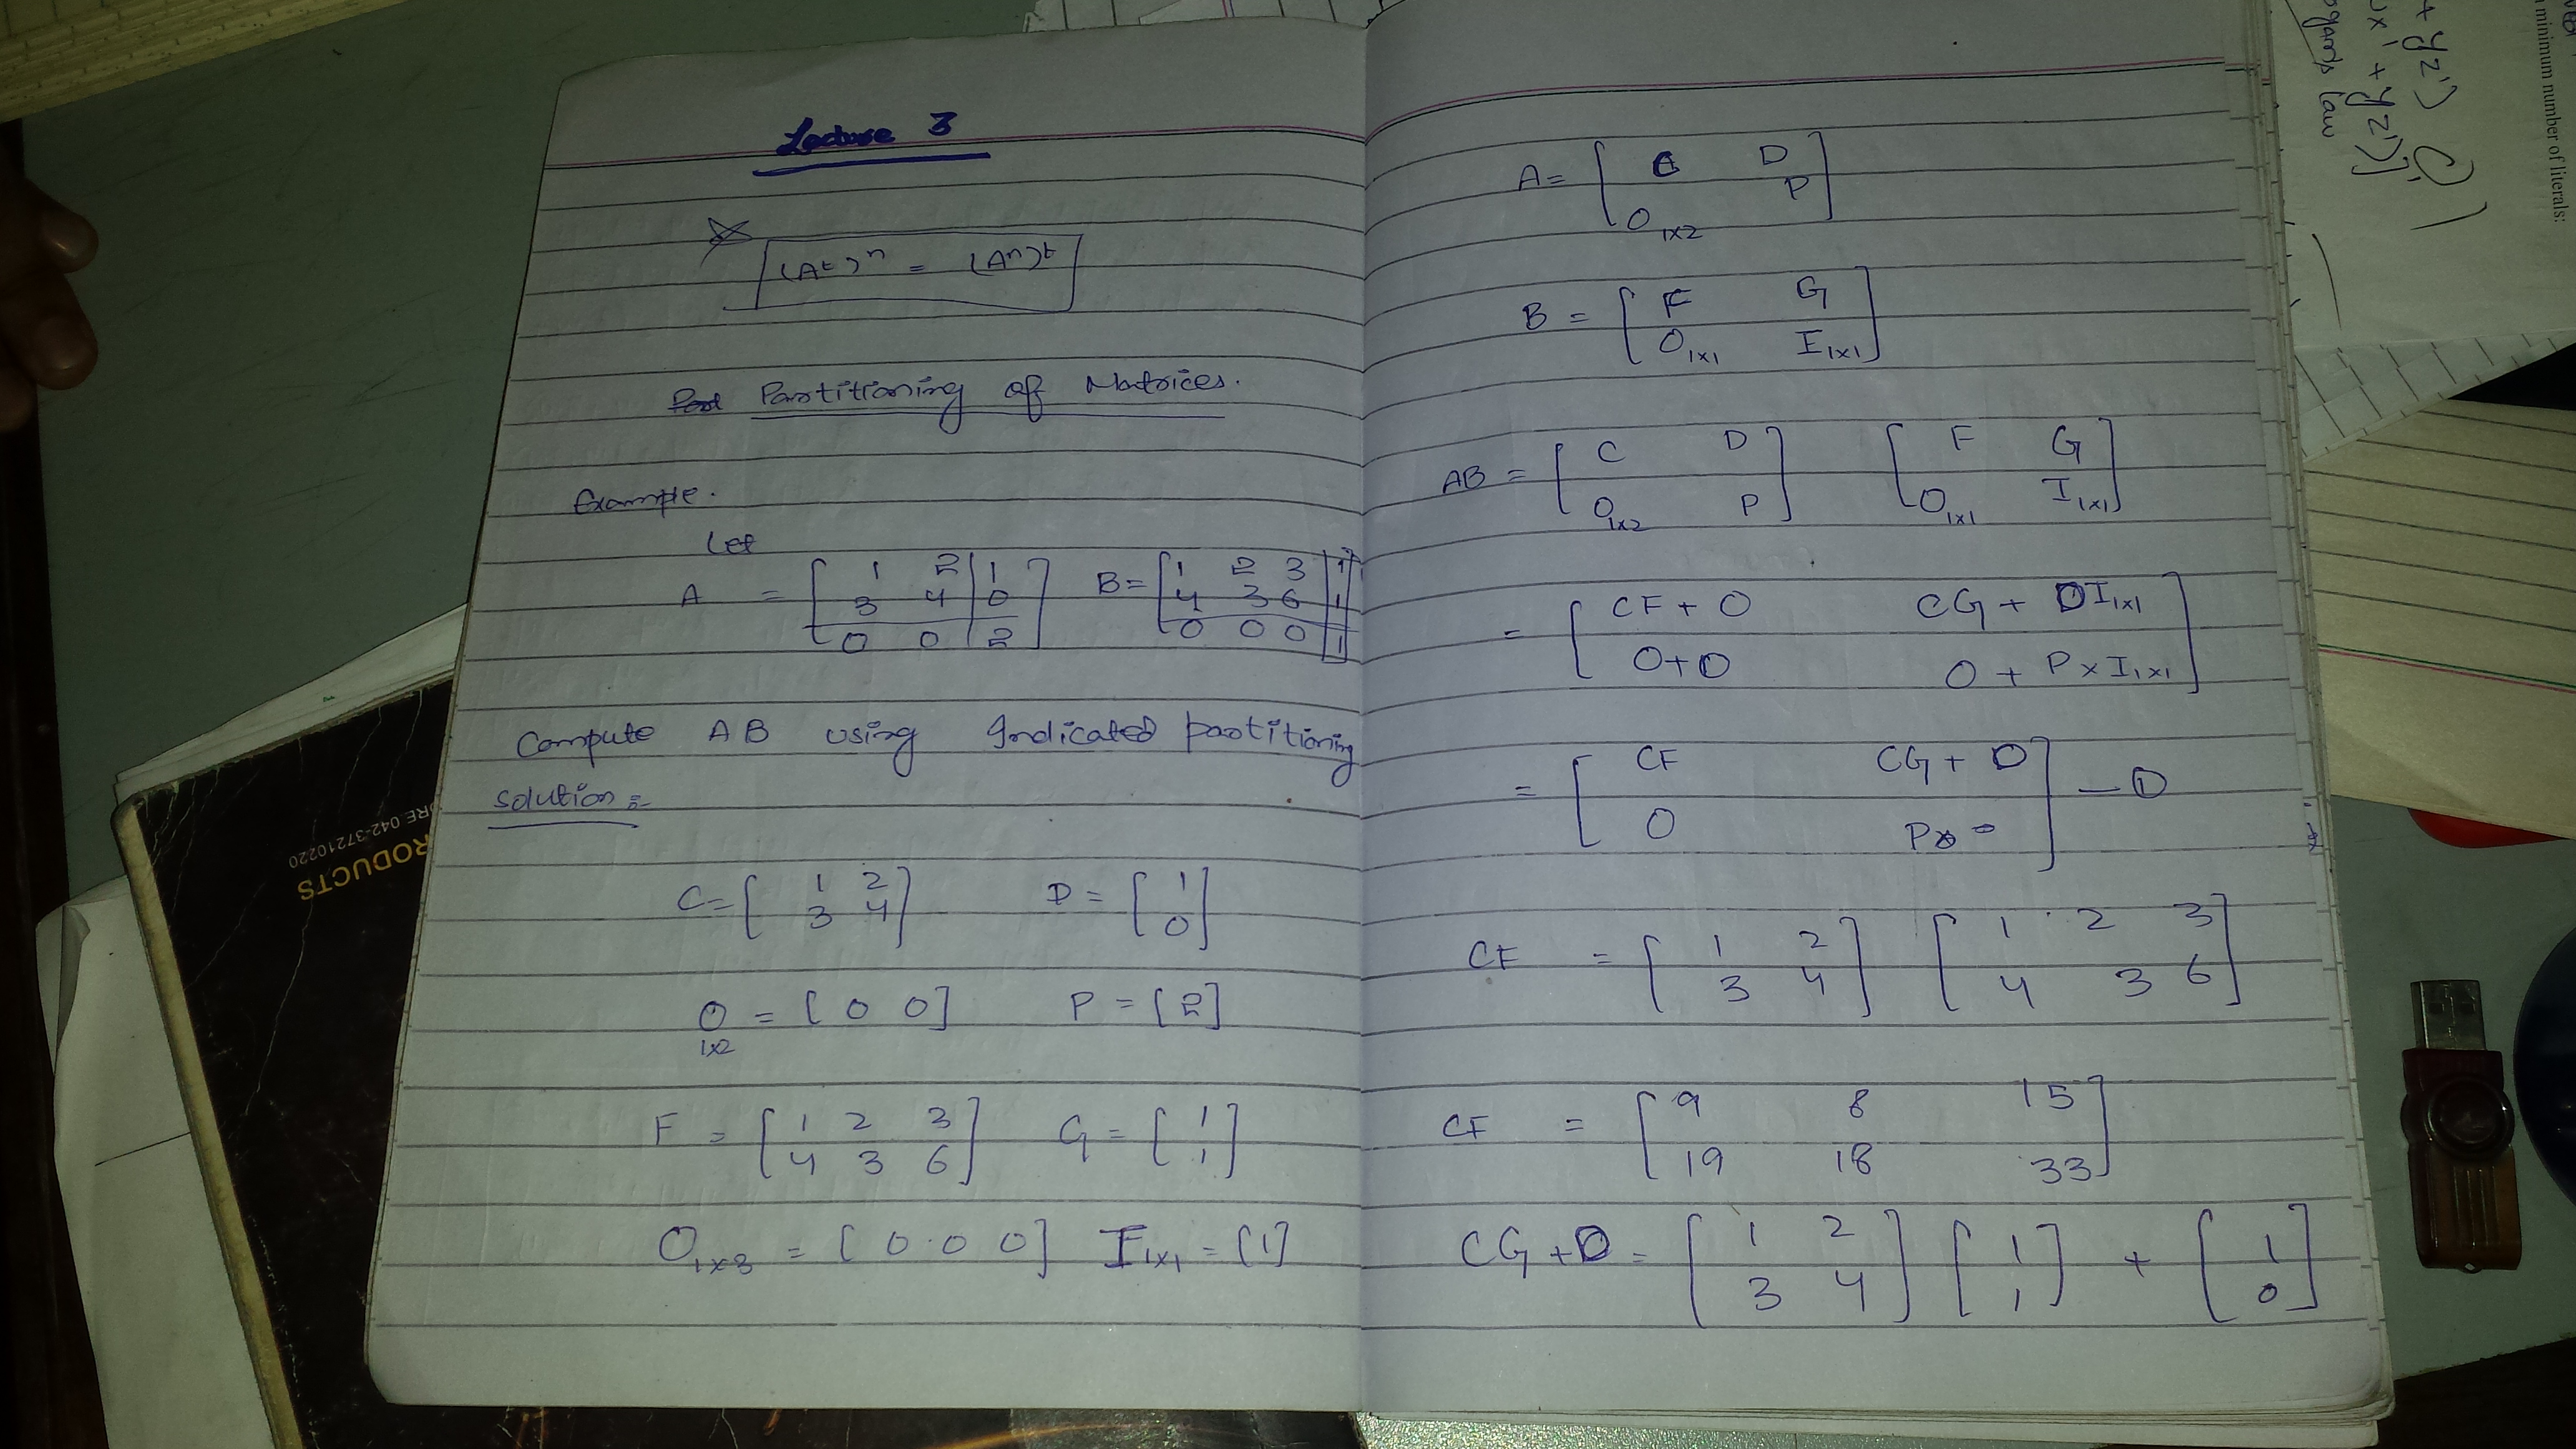 Lecture 3
(Aᵗ)ⁿ = (Aⁿ)ᵗ
Partitioning of Matrices.
Example.
Let
A = [ 1 2 | 1
3 4 | 0
0 0 | 2 ]
B = [ 1 2 3 | 1
4 3 6 | 1
0 0 0 | 1 ]
Compute AB using Indicated partitioning
Solution :-
C = [ 1 2
3 4 ]
D = [ 1
0 ]
O 1x2 = [ 0 0 ] P = [ 2 ]
F = [ 1 2 3
4 3 6 ]
G = [ 1
1 ]
O1x3 = [ 0 0 0 ] I1x1 = [1]
A = [ C D
O1x2 P ]
B = [ F G
O1x1 I1x1 ]
AB = [ C D
O1x2 P ]
[ F G
O1x1 I1x1 ]
= [ CF + O CG + DI1x1
O+O O + P x I1x1 ]
= [ CF CG + D
O P ] — ①
CF = [ 1 2
3 4 ]
[ 1 2 3
4 3 6 ]
CF = [ 9 8 15
19 18 33 ]
CG + D = [ 1 2
3 4 ]
[ 1
1 ]
+ [ 1
0 ]
PRODUCTS
ORE. 042-37210220
minimum number of literals:
+ yz')
x' + yz')]
law